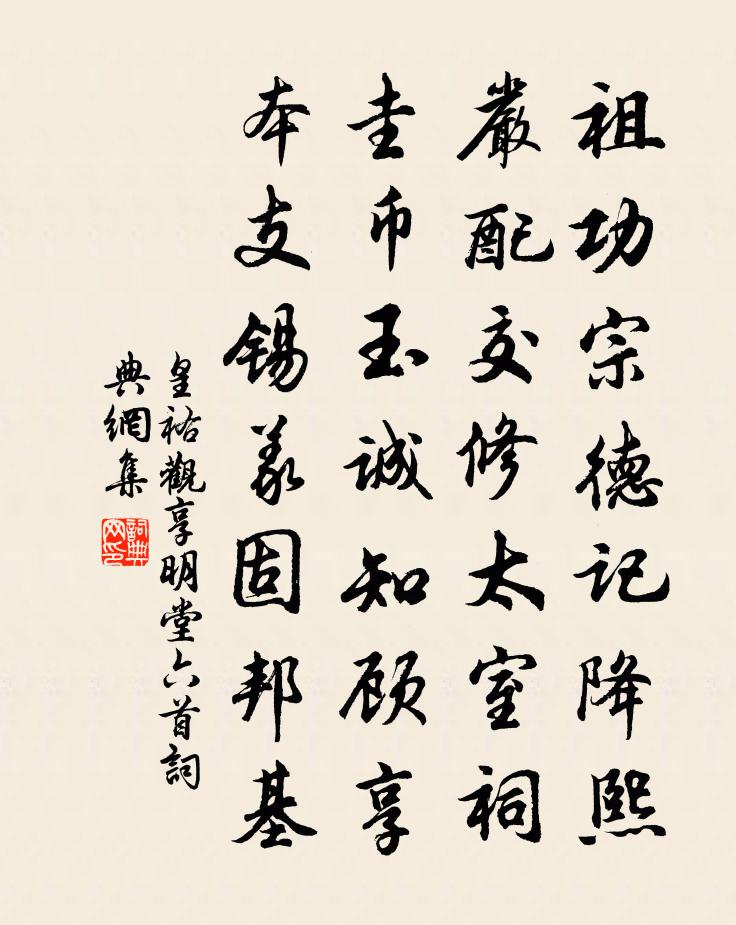 祖功宗德記降熙
嚴配交修太室祠
圭币玉誠知顾享
本支錫羨固邦基
皇祐觀享明堂六首詞
典網集
詞典网印